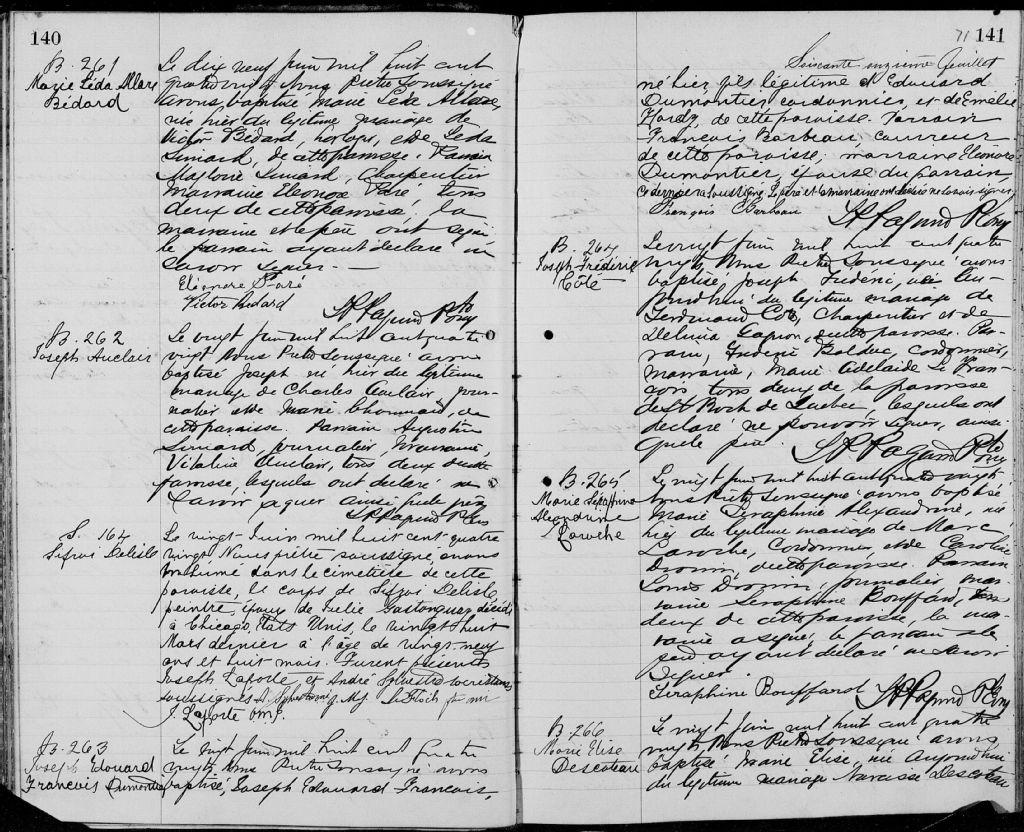 140
B. 261
Marie Léda Allare
Bédard
Le dix neuf juin mil huit cent
quatre vingt Nous Prêtre soussigné
avons baptisé Marie Léda Allare,
née hier du légitime mariage de
Victor Bédard, et de Léda
Simard, de cette paroisse. Parrain
Simard, Charpentier
Marraine Eléonore Paré tous
deux de cette paroisse, la
marraine et le père ont signé
le parrain ayant déclaré ne
savoir signer.
Eléonore Paré
Victor Bédard
B. 262
Joseph Auclair
Le vingt juin mil huit cent quatre
vingt Nous Prêtre soussigné avons
baptisé Joseph né hier du légitime
mariage de Charles Auclair, jour-
nalier et de Marie, de
cette paroisse. Parrain Augustin
Simard, journalier, Marraine,
Vitaline Auclair, tous deux de cette
paroisse, lesquels ont déclaré ne
savoir signer ainsi que le père
S. 164
Sifroi Delisle
Le vingt Juin mil huit cent quatre
vingt Nous prêtre soussigné, avons
inhumé dans le cimetière de cette
paroisse, le corps de Sifroi Delisle,
peintre, époux de Julie Gastonguay, décédé
à Chicago, Etats Unis, le vingt huit
Mars dernier à l'âge de vingt-neuf
ans et huit mois. Furent présents
Joseph Laporte et André Sylvestre
soussignés
J. Laporte
B. 263
Joseph Edouard
François Dumontier
Le vingt juin mil huit cent quatre
vingt, Nous Prêtre soussigné avons
baptisé, Joseph Edouard François,
71 141
Soixante onzième feuillet
né hier, fils légitime d'Edouard
Dumontier cordonnier, et d'Emélie
Hardy, de cette paroisse. Parrain
François Barbeau, couvreur
de cette paroisse; marraine Eléonore
Dumontier, épouse du parrain,
Ce dernier a soussigné. Le père et la marraine ont déclaré ne savoir signer
François Barbeau
B. 264
Joseph Frédéric
Côté
Le vingt juin mil huit cent quatre
vingt, Nous Prêtre soussigné avons
baptisé Joseph Frédéric, né
du légitime mariage de
Ferdinand Côté, Charpentier et de
Delvina Gagnon, de cette paroisse. Par-
rain, Frédéric Bolduc, cordonnier,
marraine, Marie Adelaide Le Fran-
çois tous deux de la paroisse
de St Roch de Québec, lesquels ont
déclaré ne pouvoir signer, ainsi
que le père.
B. 265
Marie Séraphine
Alexandrine
Laroche
Le vingt juin mil huit cent quatre vingt
Nous Prêtre soussigné avons baptisé
Marie Séraphine Alexandrine, née
hier du légitime mariage de Marc
Laroche, Cordonnier, et de Caroline
Drouin, de cette paroisse. Parrain
Louis Drouin, journalier, mar-
raine Séraphine Bouffard, tous
deux de cette paroisse, la mar-
raine a signé, le parrain et le
père ayant déclaré ne savoir
signer.
Séraphine Bouffard
B. 266
Marie Elise
Descoteau
Le vingt juin mil huit cent quatre
vingt, Nous Prêtre soussigné avons
baptisé Marie Elise, née Aujourd'hui
du légitime mariage Narcisse Descoteau